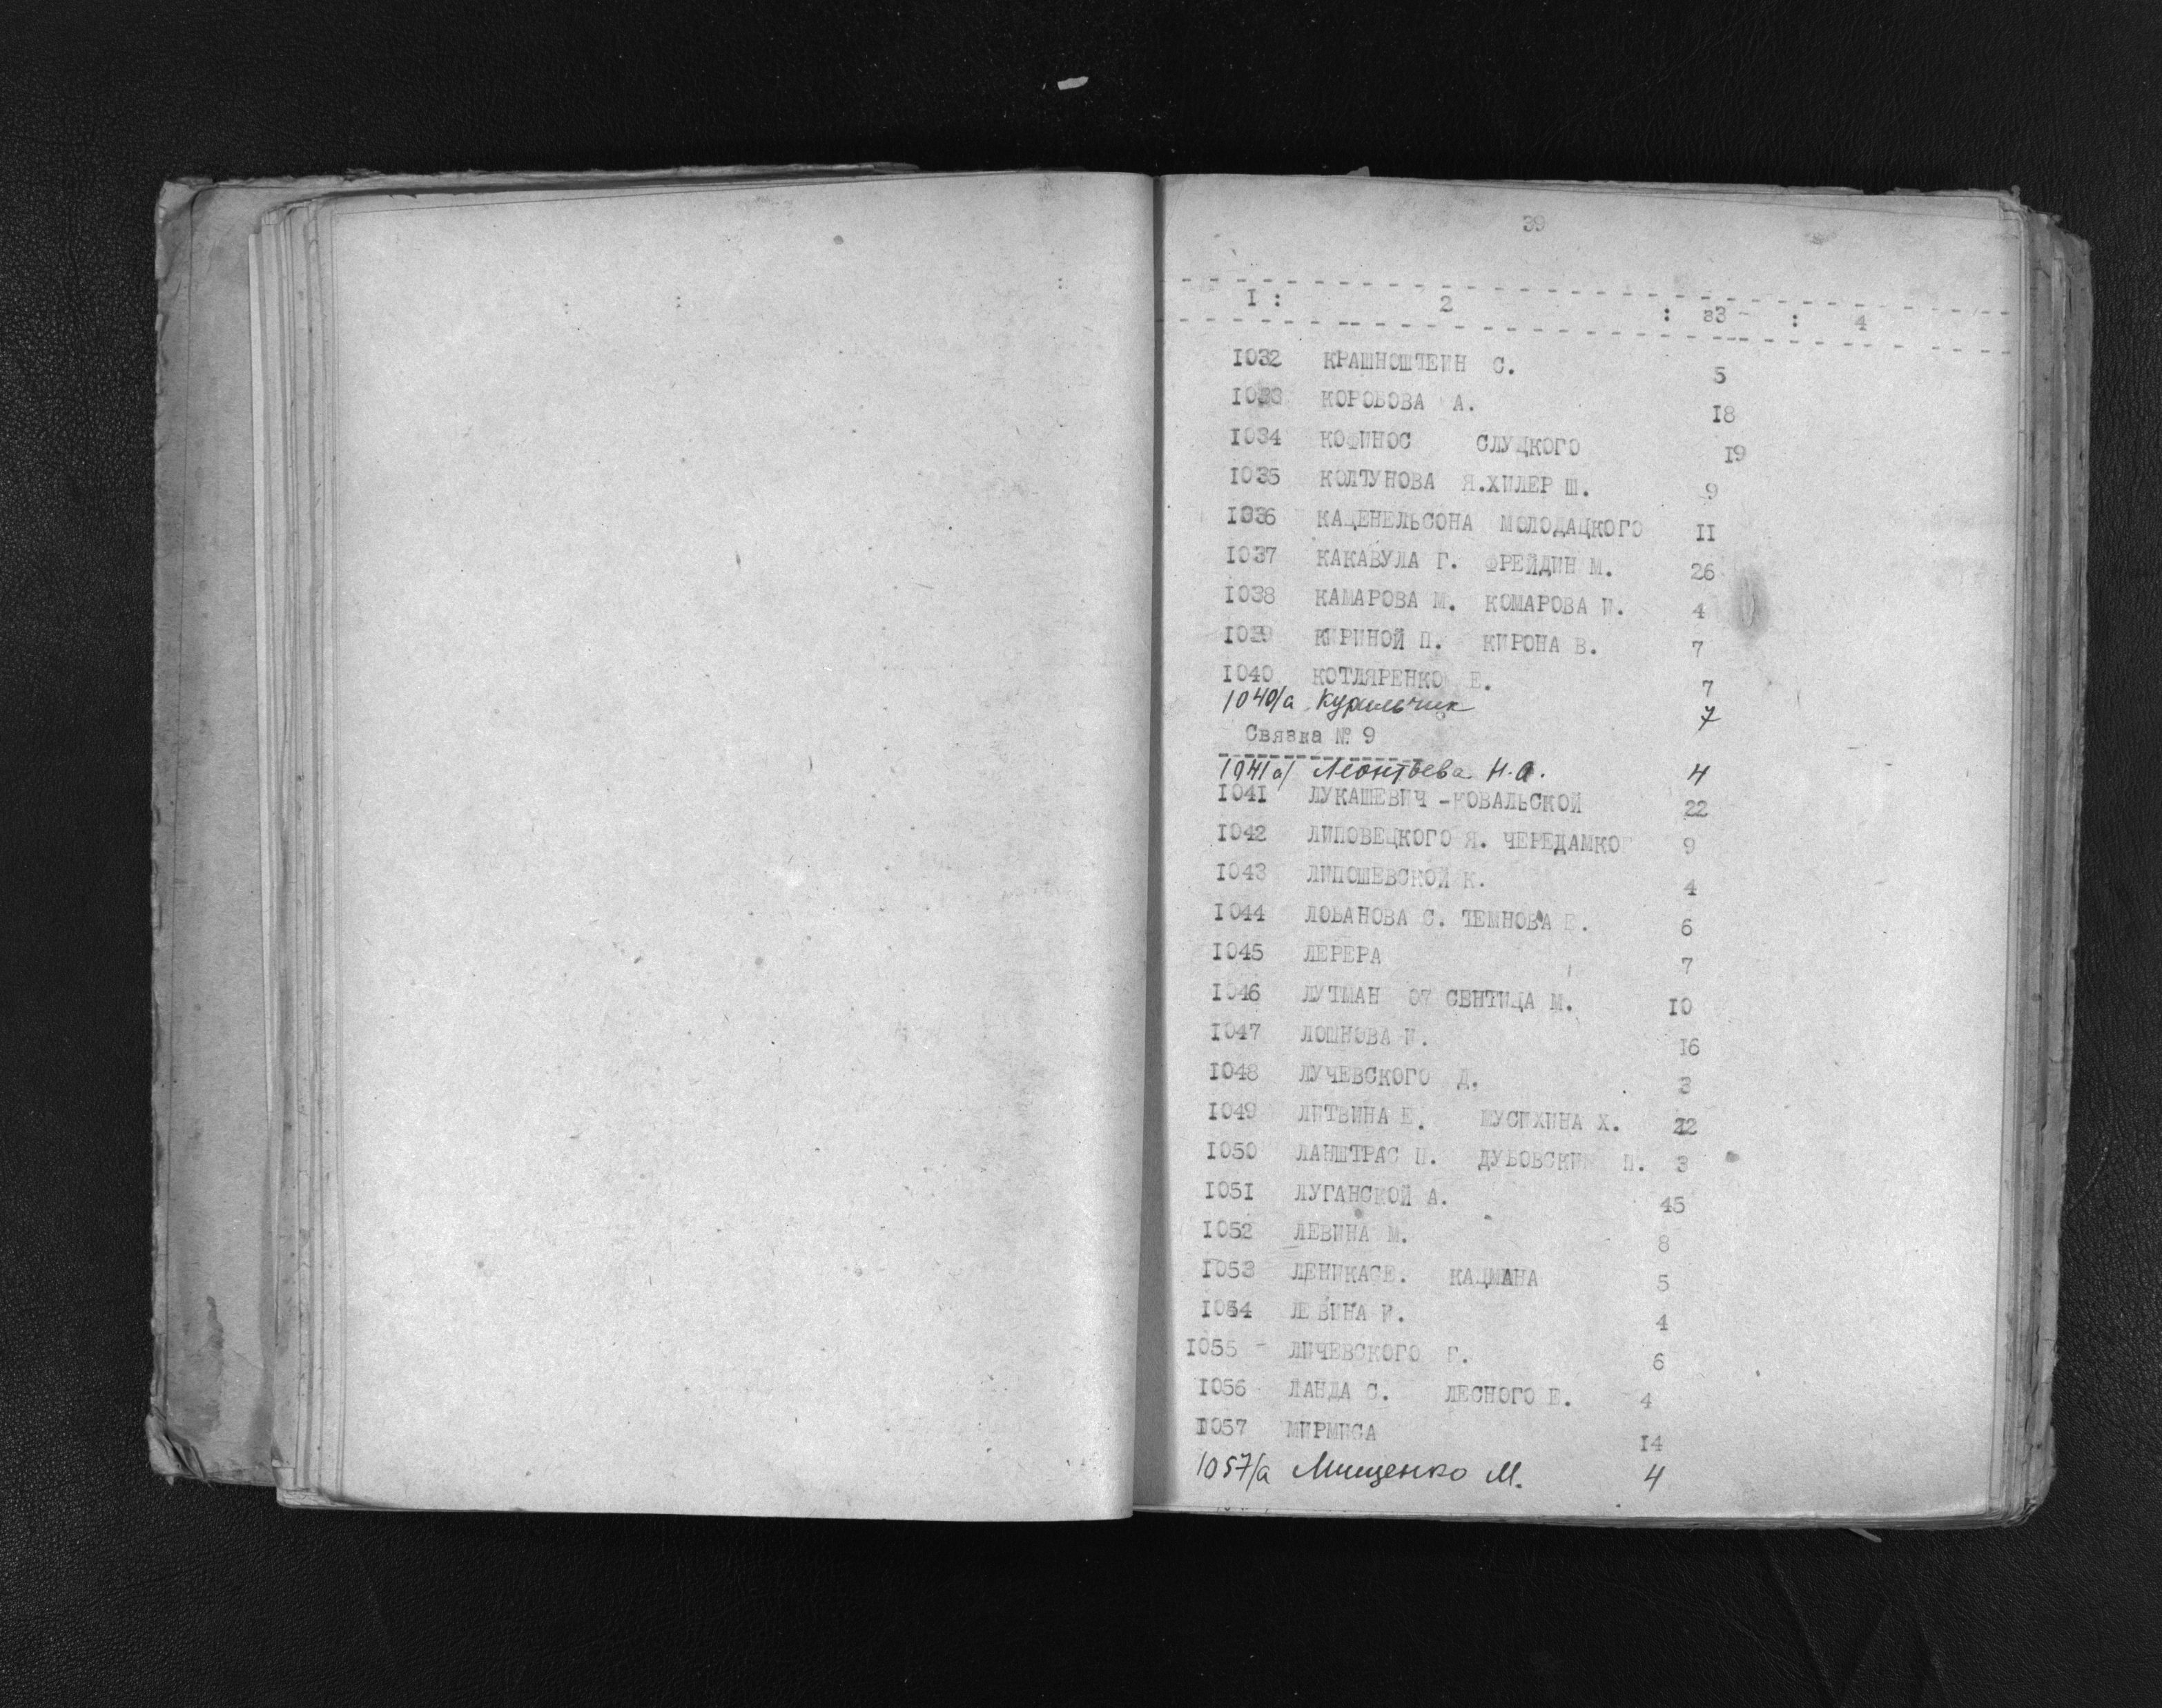 39
1 : 2 : 3 : 4
1032 КРАШНОШТЕИН С. 5
1033 КОРОБОВА А. 18
1034 КОФИНОС СЛУЦКОГО 19
1035 КОЛТУНОВА Я.ХИЛЕР Ш. 9
1036 КАЦЕНЕЛЬСОНА МОЛОДАЦКОГО 11
1037 КАКАВУЛА Г. ФРЕЙДИН М. 26
1038 КАМАРОВА М. КОМАРОВА И. 4
1039 КИРИНОЙ П. КИРОНА В. 7
1040 КОТЛЯРЕНКО Е. 7
1040/а Курильчик 7
Связка № 9
1041а/ Леонтьева Н.А. 4
1041 ЛУКАШЕВИЧ -КОВАЛЬСКОЙ 22
1042 ЛИПОВЕЦКОГО Я. ЧЕРЕДАМКО 9
1043 ЛИПОШЕВСКОЙ К. 4
1044 ЛОБАНОВА С. ТЕМНОВА 6
1045 ЛЕРЕРА 7
1046 ЛУТМАН ОТ СЕНТИЦА М. 10
1047 ЛОШНОВА 16
1048 ЛУЧЕВСКОГО Д. 3
1049 ЛИТВИНА Е. МУСИХИНА Х. 22
1050 ЛАНШТРАС П. ДУБОВСКИЙ П. 3
1051 ЛУГАНСКОЙ А. 45
1052 ЛЕВИНА М. 8
1053 ЛЕНИКАСЕ. КАЦМАНА 5
1054 ЛЕВИНА И. 4
1055 - ЛИЧЕВСКОГО Г. 6
1056 ЛАНДА С. ЛЕСНОГО Е. 4
1057 МИРМИСА 14
1057/а Мищенко М. 4